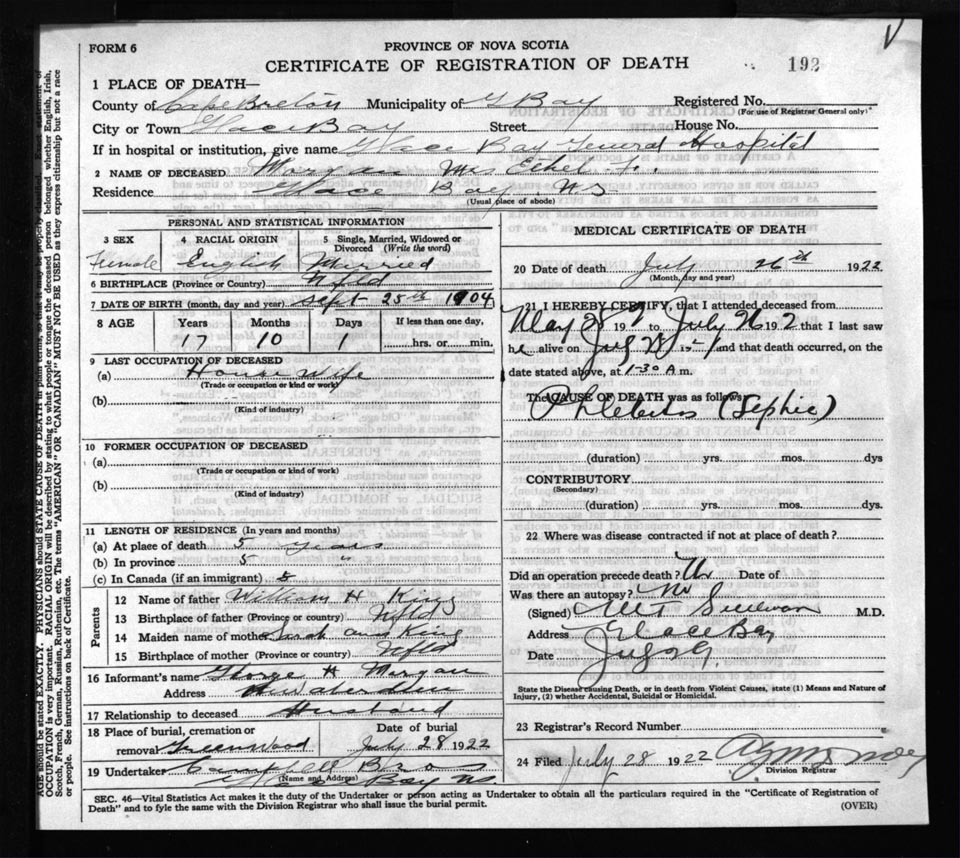 FORM 6
PROVINCE OF NOVA SCOTIA
CERTIFICATE OF REGISTRATION OF DEATH
192
1 PLACE OF DEATH—
County of Cape Breton Municipality of G Bay Registered No.
(For use of Registrar General only)
City or Town Glace Bay Street House No.
If in hospital or institution, give name Glace Bay General Hospital
2 NAME OF DECEASED Morgan Mrs Ethel
Residence Glace Bay NS
(Usual place of abode)
PERSONAL AND STATISTICAL INFORMATION
3 SEX 4 RACIAL ORIGIN 5 Single, Married, Widowed or Divorced (Write the word)
Female English Married
6 BIRTHPLACE (Province or Country) Nfld
7 DATE OF BIRTH (month, day and year) Sept 25th 1904
8 AGE Years Months Days If less than one day,
17 10 1 hrs. or min.
9 LAST OCCUPATION OF DECEASED
(a) House Wife
(Trade or occupation or kind or work)
(b)
(Kind of industry)
10 FORMER OCCUPATION OF DECEASED
(a)
(Trade or occupation or kind of work)
(b)
(Kind of industry)
11 LENGTH OF RESIDENCE (In years and months)
(a) At place of death 5 years
(b) In province 5 "
(c) In Canada (if an immigrant) 5
Parents
12 Name of father William H King
13 Birthplace of father (Province or country) Nfld
14 Maiden name of mother Sarah Ann King
15 Birthplace of mother (Province or country) Nfld
16 Informant's name George H Morgan
Address New Aberdeen
17 Relationship to deceased Husband
18 Place of burial, cremation or Date of burial
removal Greenwood July 28 1922
19 Undertaker Campbell Bros
(Name and Address) Glace Bay NS
MEDICAL CERTIFICATE OF DEATH
20 Date of death July 26th 1922
(Month, day and year)
21 I HEREBY CERTIFY, that I attended deceased from
May 192 to July 26 192 that I last saw
h alive on 192 and that death occurred, on the
date stated above, at 1-30 A m.
The CAUSE OF DEATH was as follows
Phlebitis (Septic)
(duration) yrs. mos. dys
CONTRIBUTORY
(Secondary)
(duration) yrs. mos. dys.
22 Where was disease contracted if not at place of death?
Did an operation precede death? Date of
Was there an autopsy? No
(Signed) Sullivan M.D.
Address Glace Bay
Date
State the Disease causing Death, or in death from Violent Causes, state (1) Means and Nature of
Injury, (2) whether Accidental, Suicidal or Homicidal.
23 Registrar's Record Number
24 Filed July 28 1922
Division Registrar
SEC. 46—Vital Statistics Act makes it the duty of the Undertaker or person acting as Undertaker to obtain all the particulars required in the "Certificate of Registration of
Death" and to fyle the same with the Division Registrar who shall issue the burial permit.
(OVER)
AGE should be stated EXACTLY. PHYSICIANS should STATE CAUSE OF DEATH in plain terms, so that it may be properly classified. Exact statement of
OCCUPATION is very important. RACIAL ORIGIN will be described by stating to what people or tongue the deceased person belonged whether English, Irish,
Scotch, French, German, Russian, Ruthenian, etc. The terms "AMERICAN" OR "CANADIAN" MUST NOT BE USED as they express citizenship but not a race
or people. See instructions on back of Certificate.